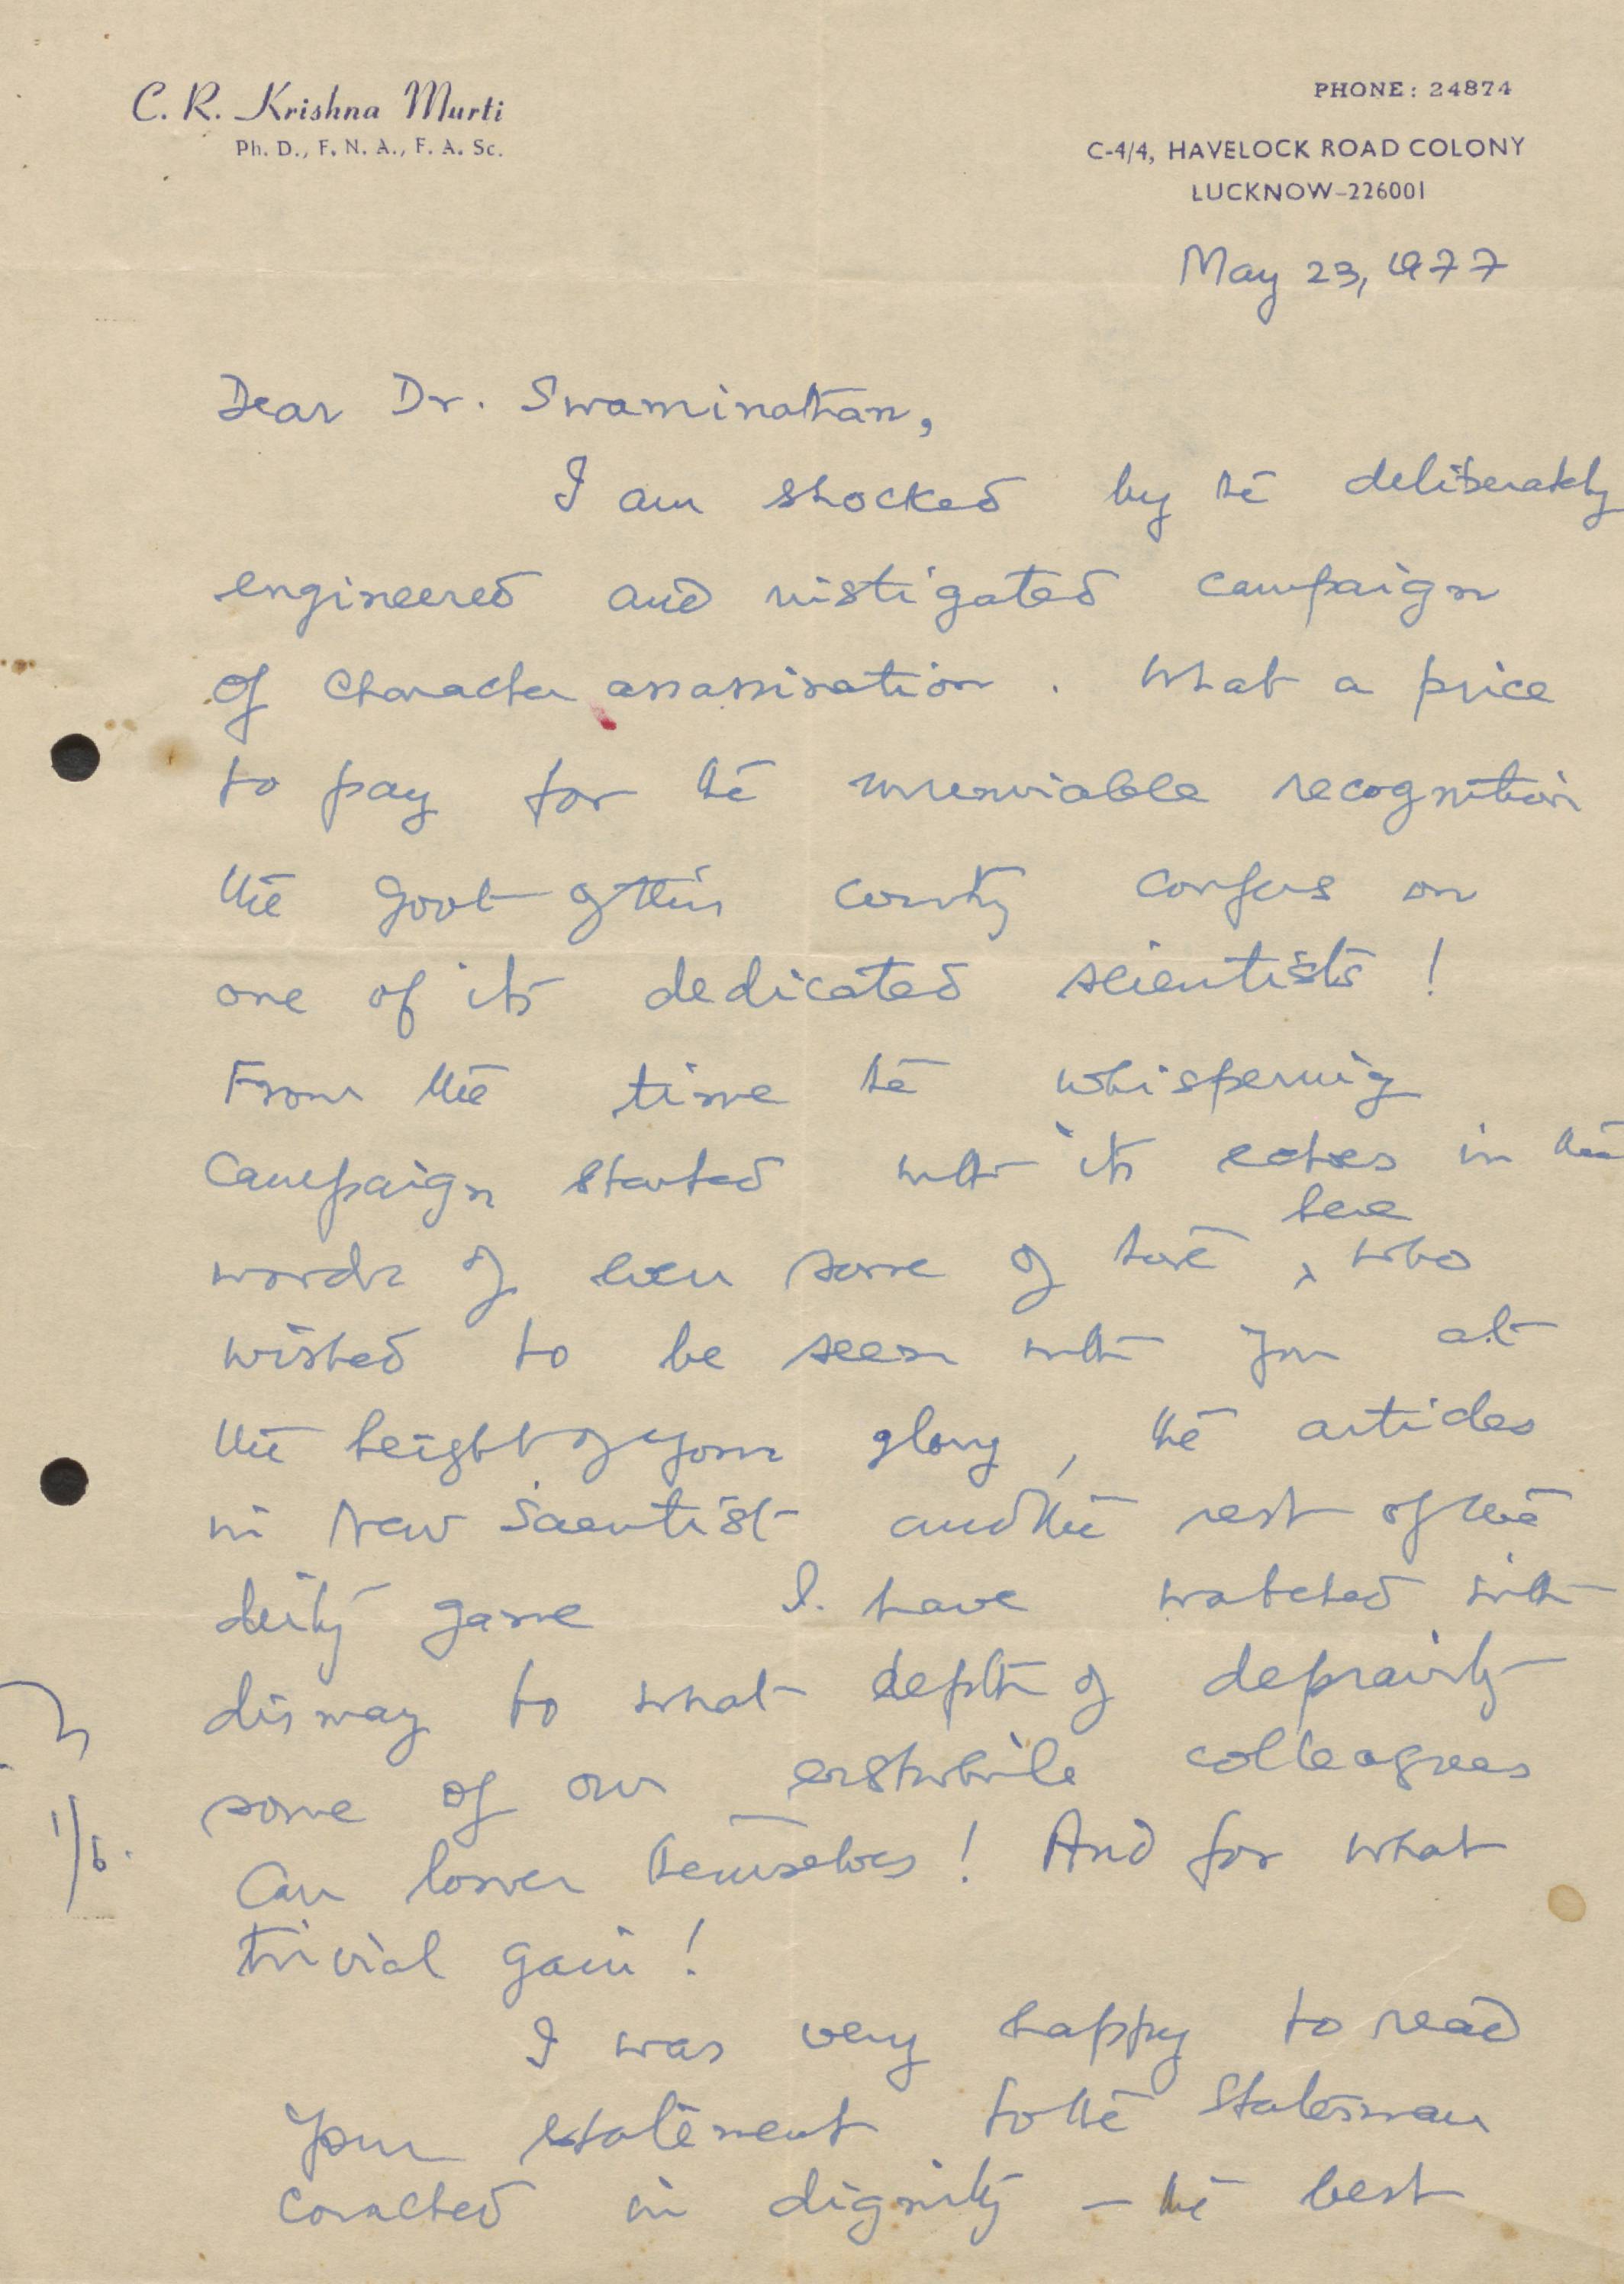 C. R. Krishna Murti
Ph. D., F. N. A., F. A. Sc.
PHONE: 24874
C-4/4, HAVELOCK ROAD COLONY
LUCKNOW-226001
May 23, 1977
Dear Dr. Swaminathan,
I am shocked by the deliberately
engineered and instigated campaign
of character assassination. What a price
to pay for the unenviable recognition
the Govt of this country confers on
one of its dedicated scientists!
From the time the whispering
campaign started with its echoes in the
here
words of even some of those, who
wished to be seen with you at
the height of your glory, the articles
in New Scientist and the rest of the
dirty game I have watched with
dismay to what depth of depravity
some of our erstwhile colleagues
can lower themselves! And for what
trivial gain!
1/6.
I was very happy to read
your statement to the Statesman
couched in dignity – the best